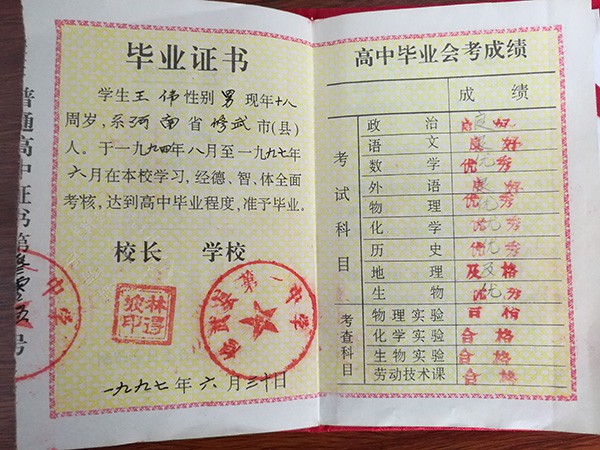 普通高中证书第 号
毕业证书
学生王伟性别男现年十八
周岁,系河南省修武市(县)
人。于一九九四年八月至一九九七年
六月在本校学习,经德、智、体全面
考核,达到高中毕业程度,准予毕业。
校长 学校
修武县第一中学
印
一九九七年六月三十日
中学
高中毕业会考成绩
成绩
考试科目
政治 良好
语文 良好
数学 优秀
外语 良好
物理 优秀
化学 优秀
历史 优秀
地理 及格
生物 优秀
考查科目
物理实验 合格
化学实验 合格
生物实验 合格
劳动技术课 合格